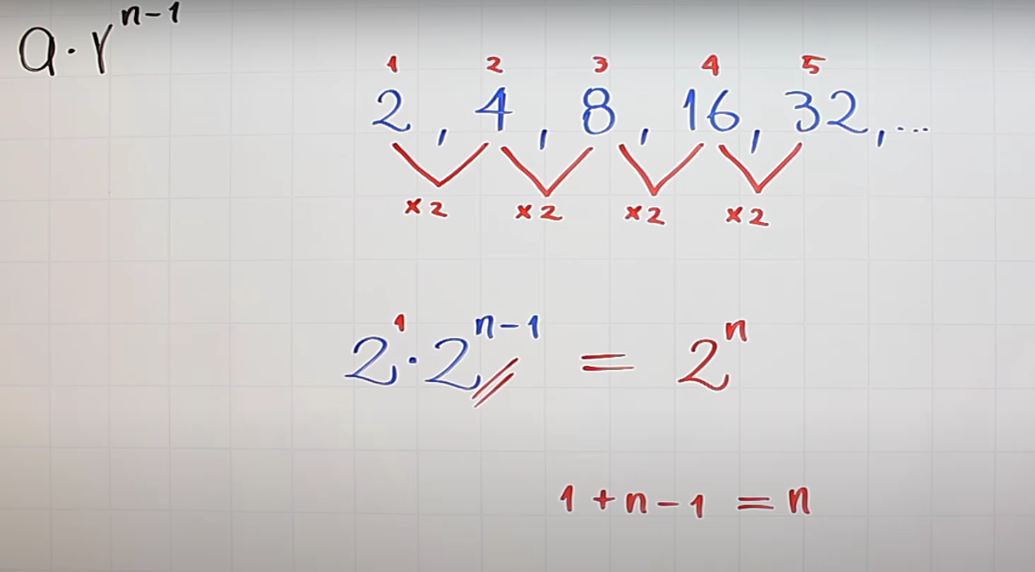 a·r^n-1
1 2 3 4 5
2, 4, 8, 16, 32, ...
×2 ×2 ×2 ×2
2^1·2^n-1 = 2^n
1+n-1=n